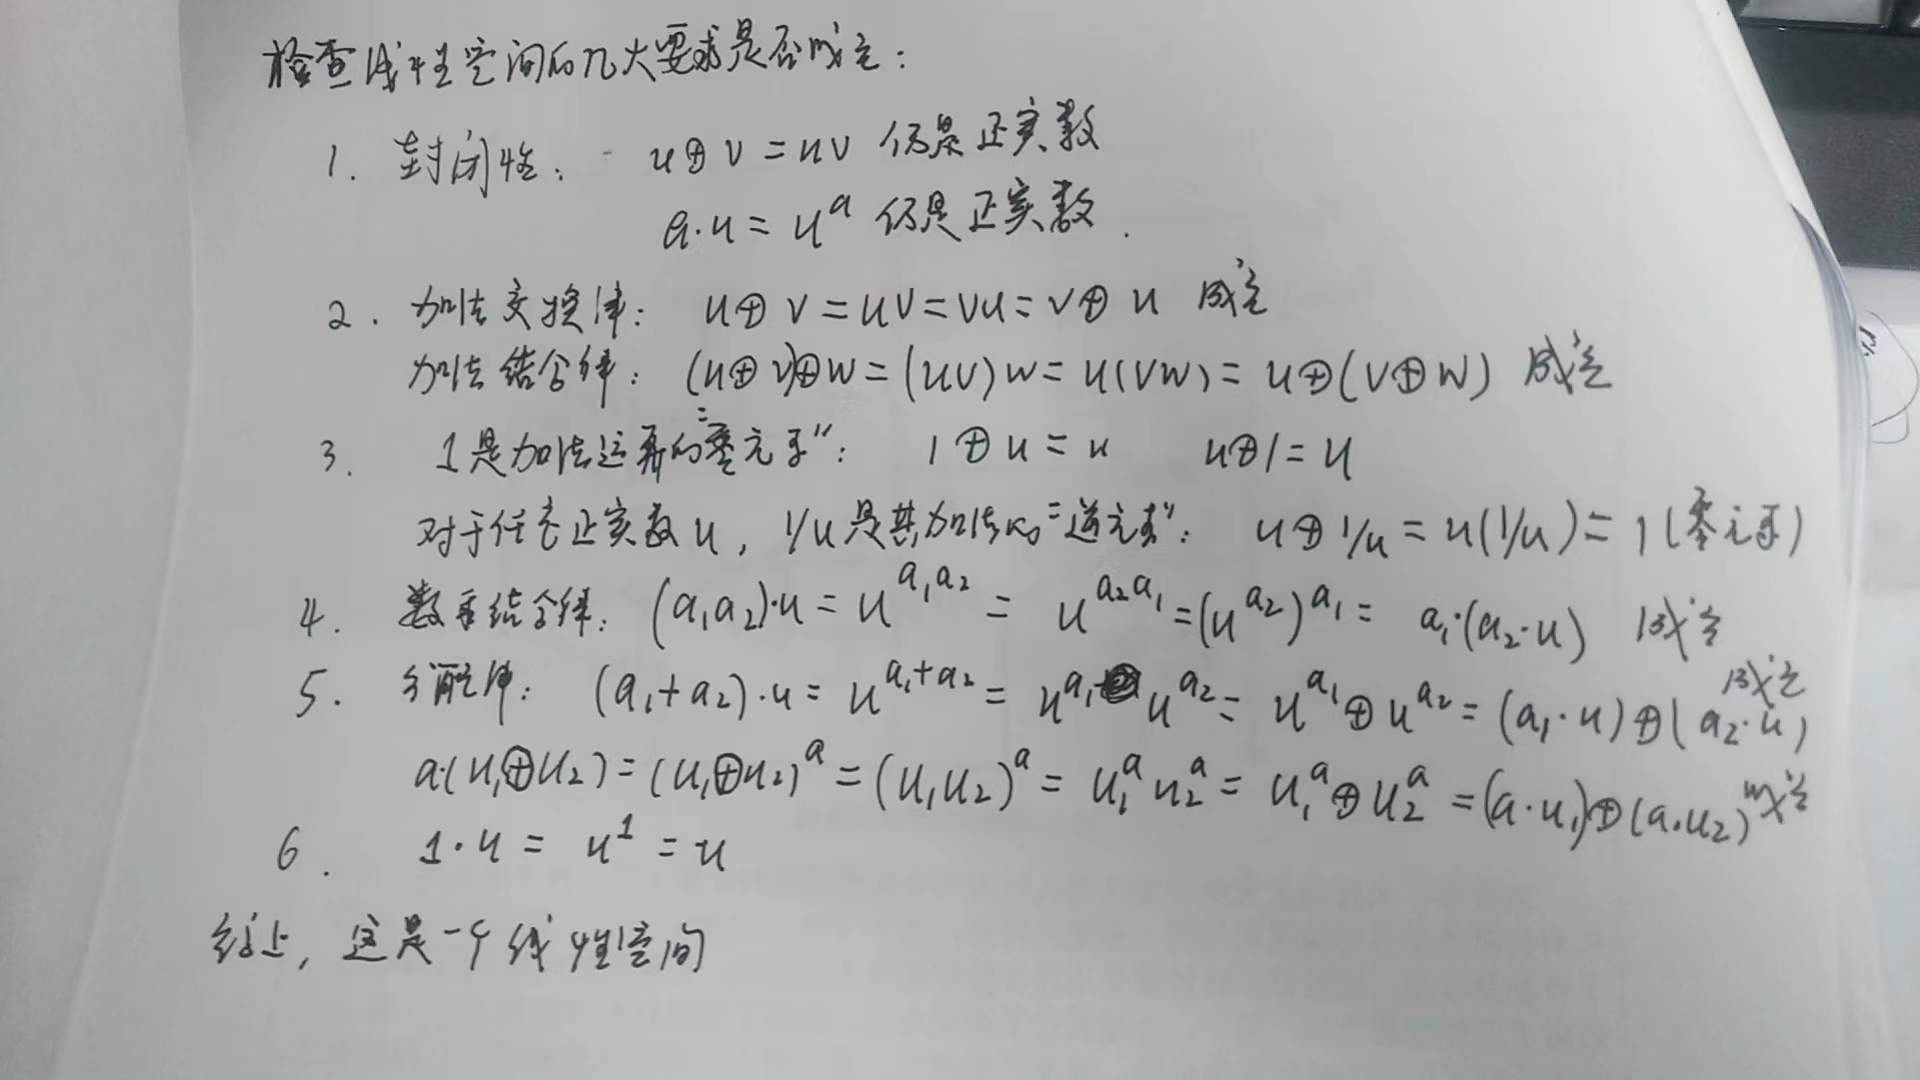 检查线性空间的几大要求是否成立：
1. 封闭性： u⊕v=uv 仍是正实数
a·u=u^a 仍是正实数.
2. 加法交换律： u⊕v=uv=vu=v⊕u 成立
加法结合律：(u⊕v)⊕w=(uv)w=u(vw)=u⊕(v⊕w) 成立
3. 1是加法运算的"零元素"： 1⊕u=u u⊕1=u
对于任意正实数u，1/u是其加法的"逆元素"： u⊕1/u=u(1/u)=1(零元素)
4. 数乘结合律：(a₁a₂)·u=u^{a₁a₂}=u^{a₂a₁}=(u^{a₂})^{a₁}=a₁·(a₂·u) 成立
5. 分配律：(a₁+a₂)·u=u^{a₁+a₂}=u^{a₁}u^{a₂}=u^{a₁}⊕u^{a₂}=(a₁·u)⊕(a₂·u) 成立
a·(u₁⊕u₂)=(u₁⊕u₂)^a=(u₁u₂)^a=u₁^a u₂^a=u₁^a⊕u₂^a=(a·u₁)⊕(a·u₂) 成立
6. 1·u=u^1=u
综上，这是一个线性空间